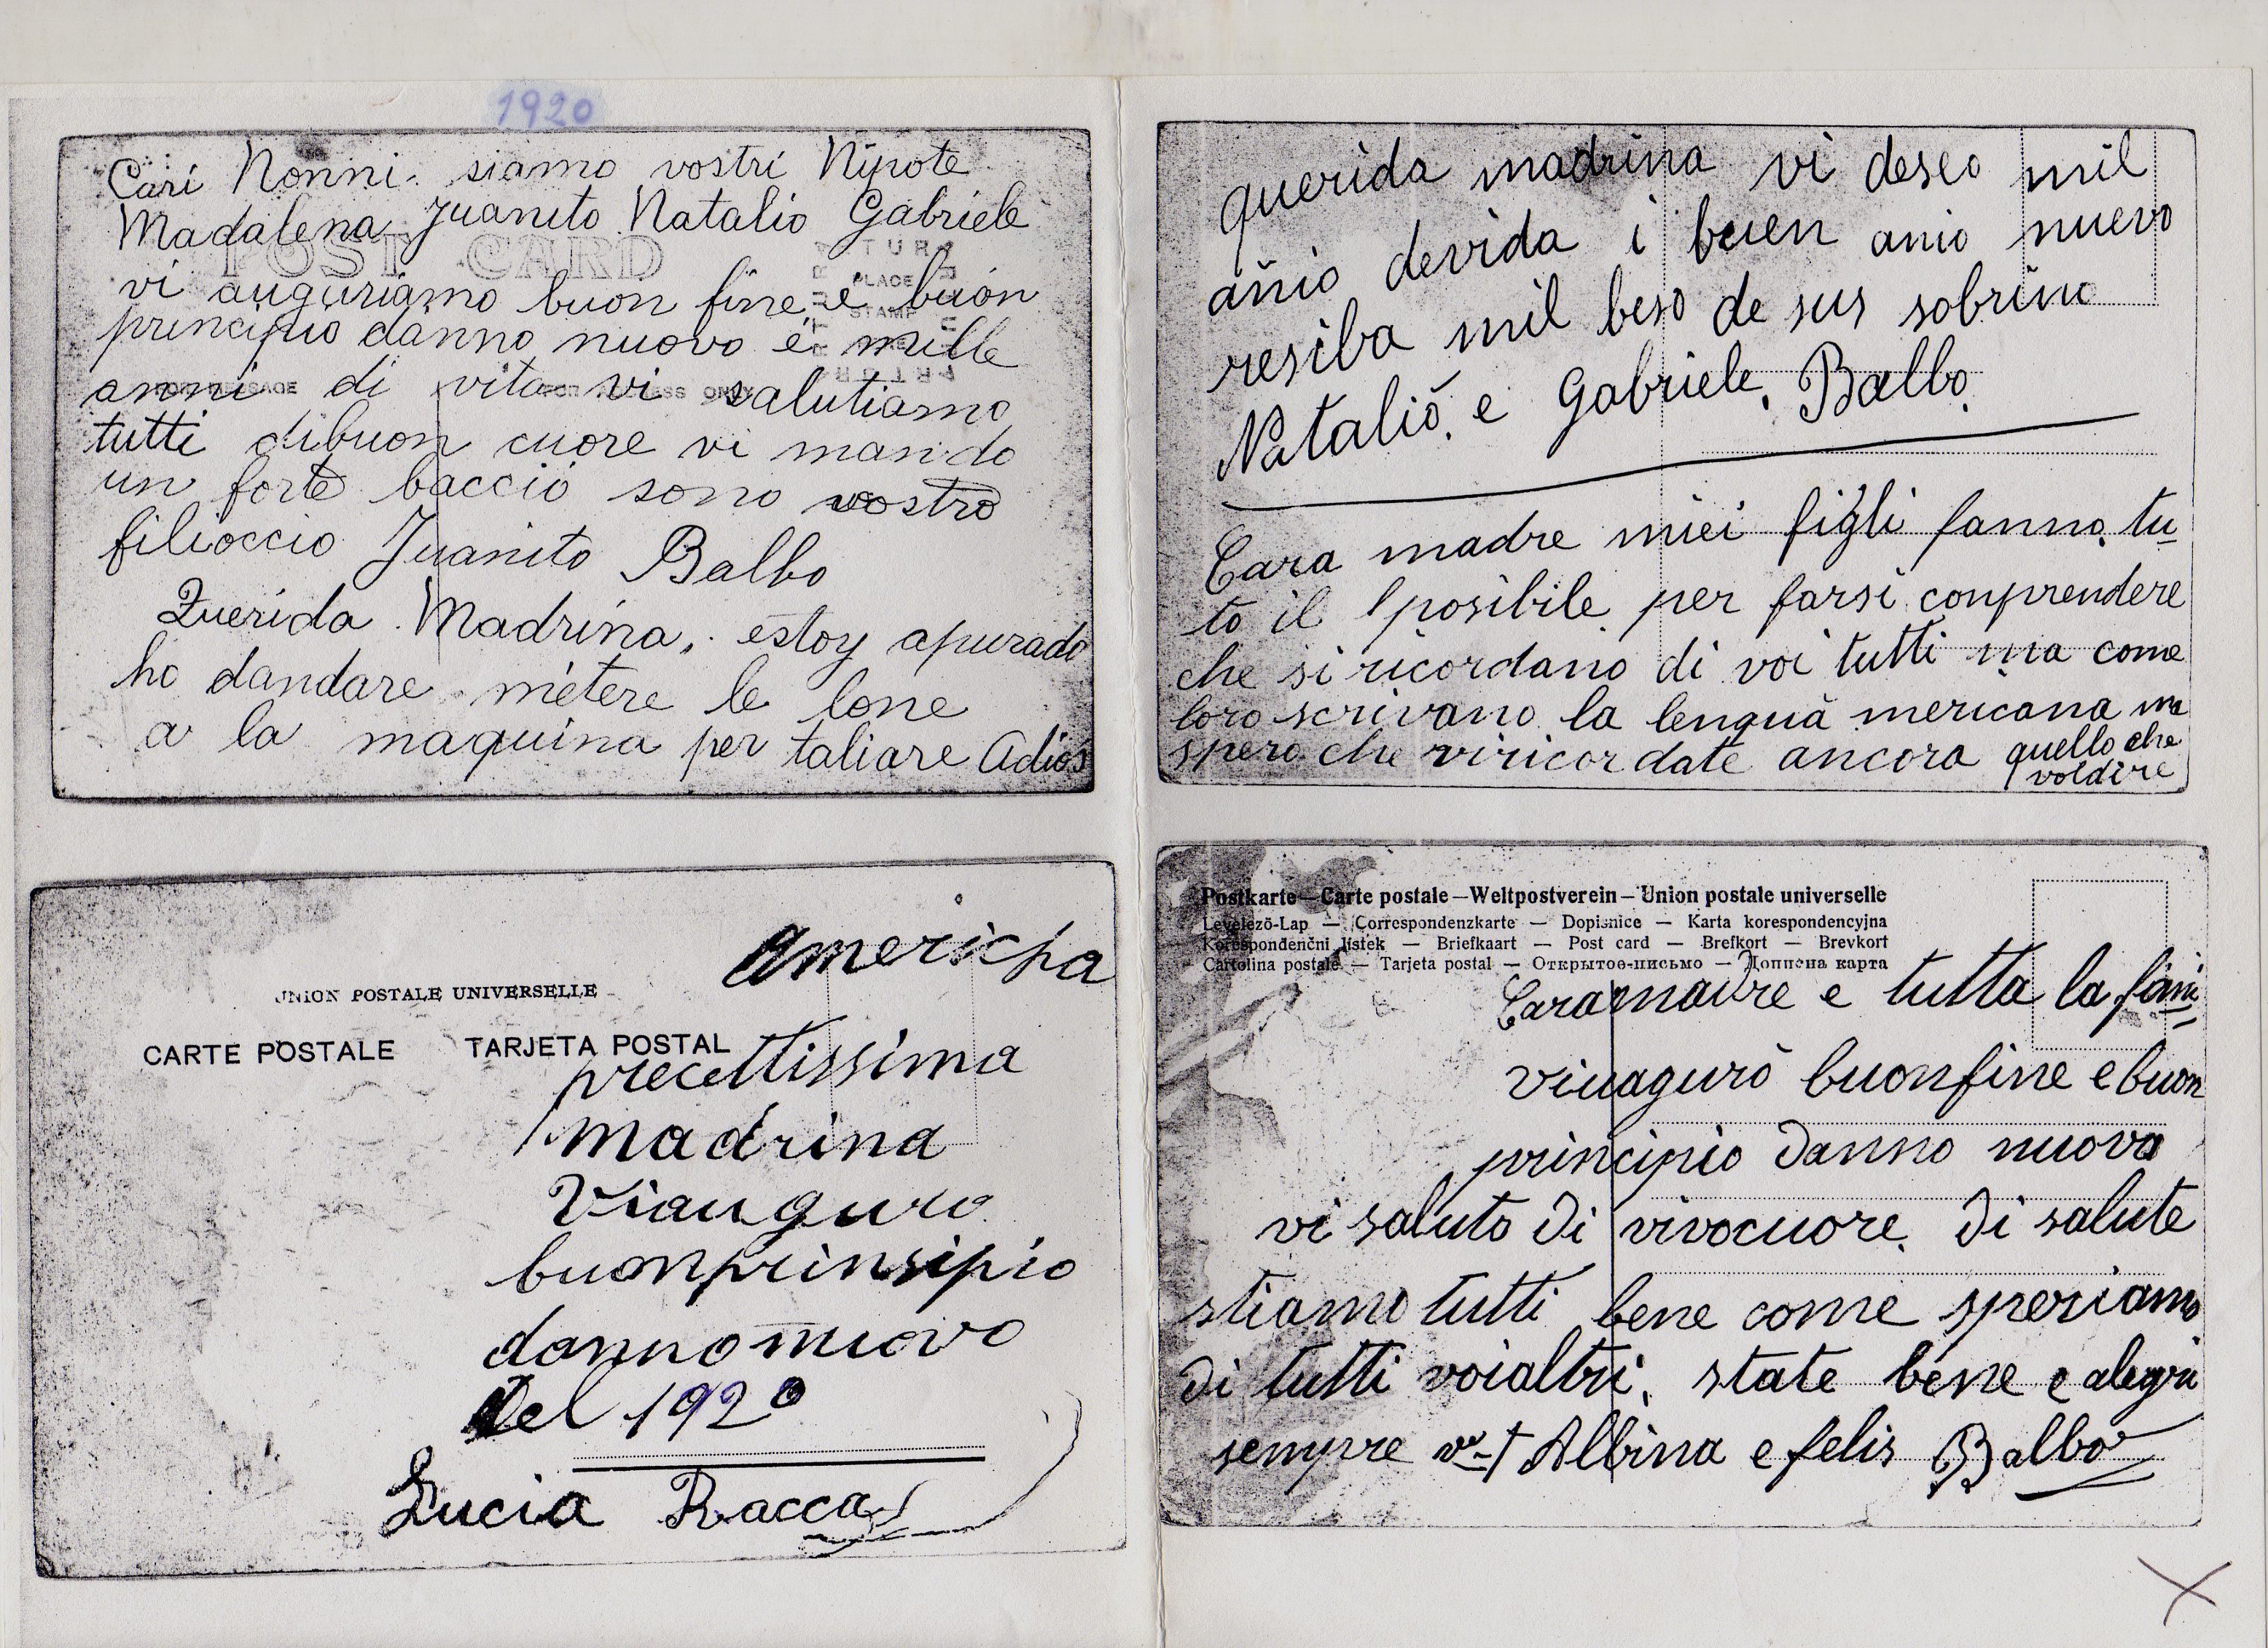 1920
Cari Nonni. siamo vostri Nipote
Madalena Juanito Natalio Gabriele
POST CARD
PLACE
STAMP
vi auguriamo buon fine é buón
principio dánno nuovo é mille
anni di vita vi salutiamo
tutti dibuon cuore vi mando
un forte baccio sono vostro
filioccio Juanito Balbo
Querida Madrina, estoy apurado
ho dandare métere le lone
a la maquina per taliare Adios
querida madrina vi deseo mil
añio devida i buen anio nuevo
resiba mil beso de sus sobrino
Natalió. e Gabriele. Balbo.
Cara madre miei figli fanno tu
to il posibile per farsi conprendere
che si ricordano di voi tutti ma come
loro scrivano la lenguà mericana ma
spero che viricordate ancora quello che
voldire
americha
UNION POSTALE UNIVERSELLE
CARTE POSTALE TARJETA POSTAL
precettissima
madrina
Viauguro
buonprinsipio
dannonuovo
Del 1920
Lucia Racca
Postkarte—Carte postale—Weltpostverein—Union postale universelle
Levelezö-Lap — Correspondenzkarte — Dopisnice — Karta korespondencyjna
Korespondenční listek — Briefkaart — Post card — Brefkort — Brevkort
Cartolina postale — Tarjeta postal — Открытое-письмо — Дописна карта
Caramadre e tutta la fami
viuagurò buonfine e buon
principio danno nuovo
vi saluto di vivocuore. di salute
stiamo tutti bene come speriamo
di tutti voialtri. state bene e alegri
sempre Albina e felis Balbo